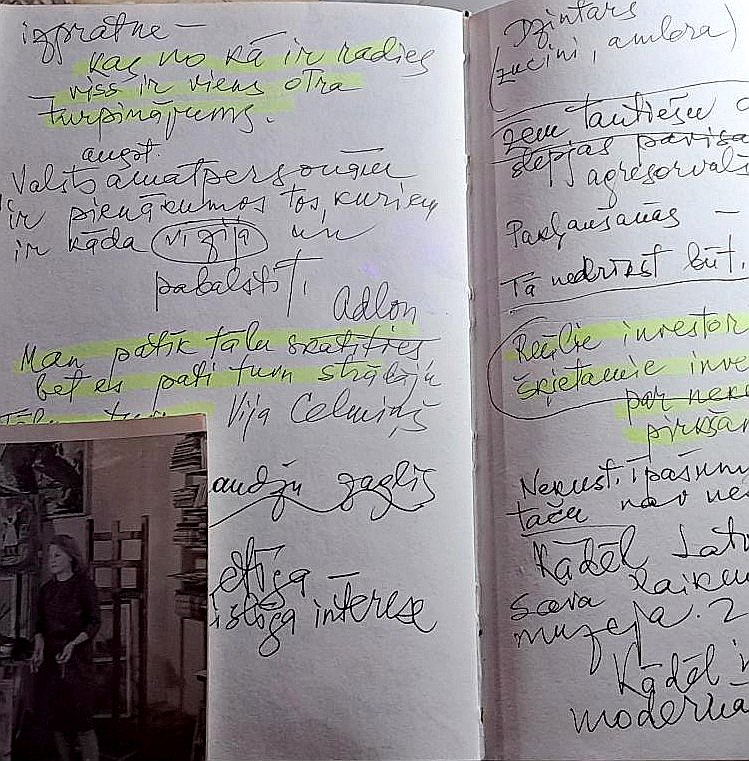 izpratne –
kas no kā ir radies
viss ir viens otra
turpinājums.
augst.
Valsts amatpersonām
ir pienākumos tos, kuriem
ir kāda vīzija un
pabalstīt.
Adlon
Man patīk tālu skatīties
bet es pati tuvu strādāju
Vija Celmiņš
audžu zaglis
ētiga –
istiga interese
Dzintars
(zucini, ambra)
Zem tautiešu
slēpjas pavisa
agresorvals
Pakļaušanās –
Tā nedrīkst būt.
Reālie investor
šķietamie inve
par neku
pirkšan
Nekust. īpašum
taču nav ne
Kādēļ Latv
sava laikm
muzeja. 2
Kādēļ
modernā